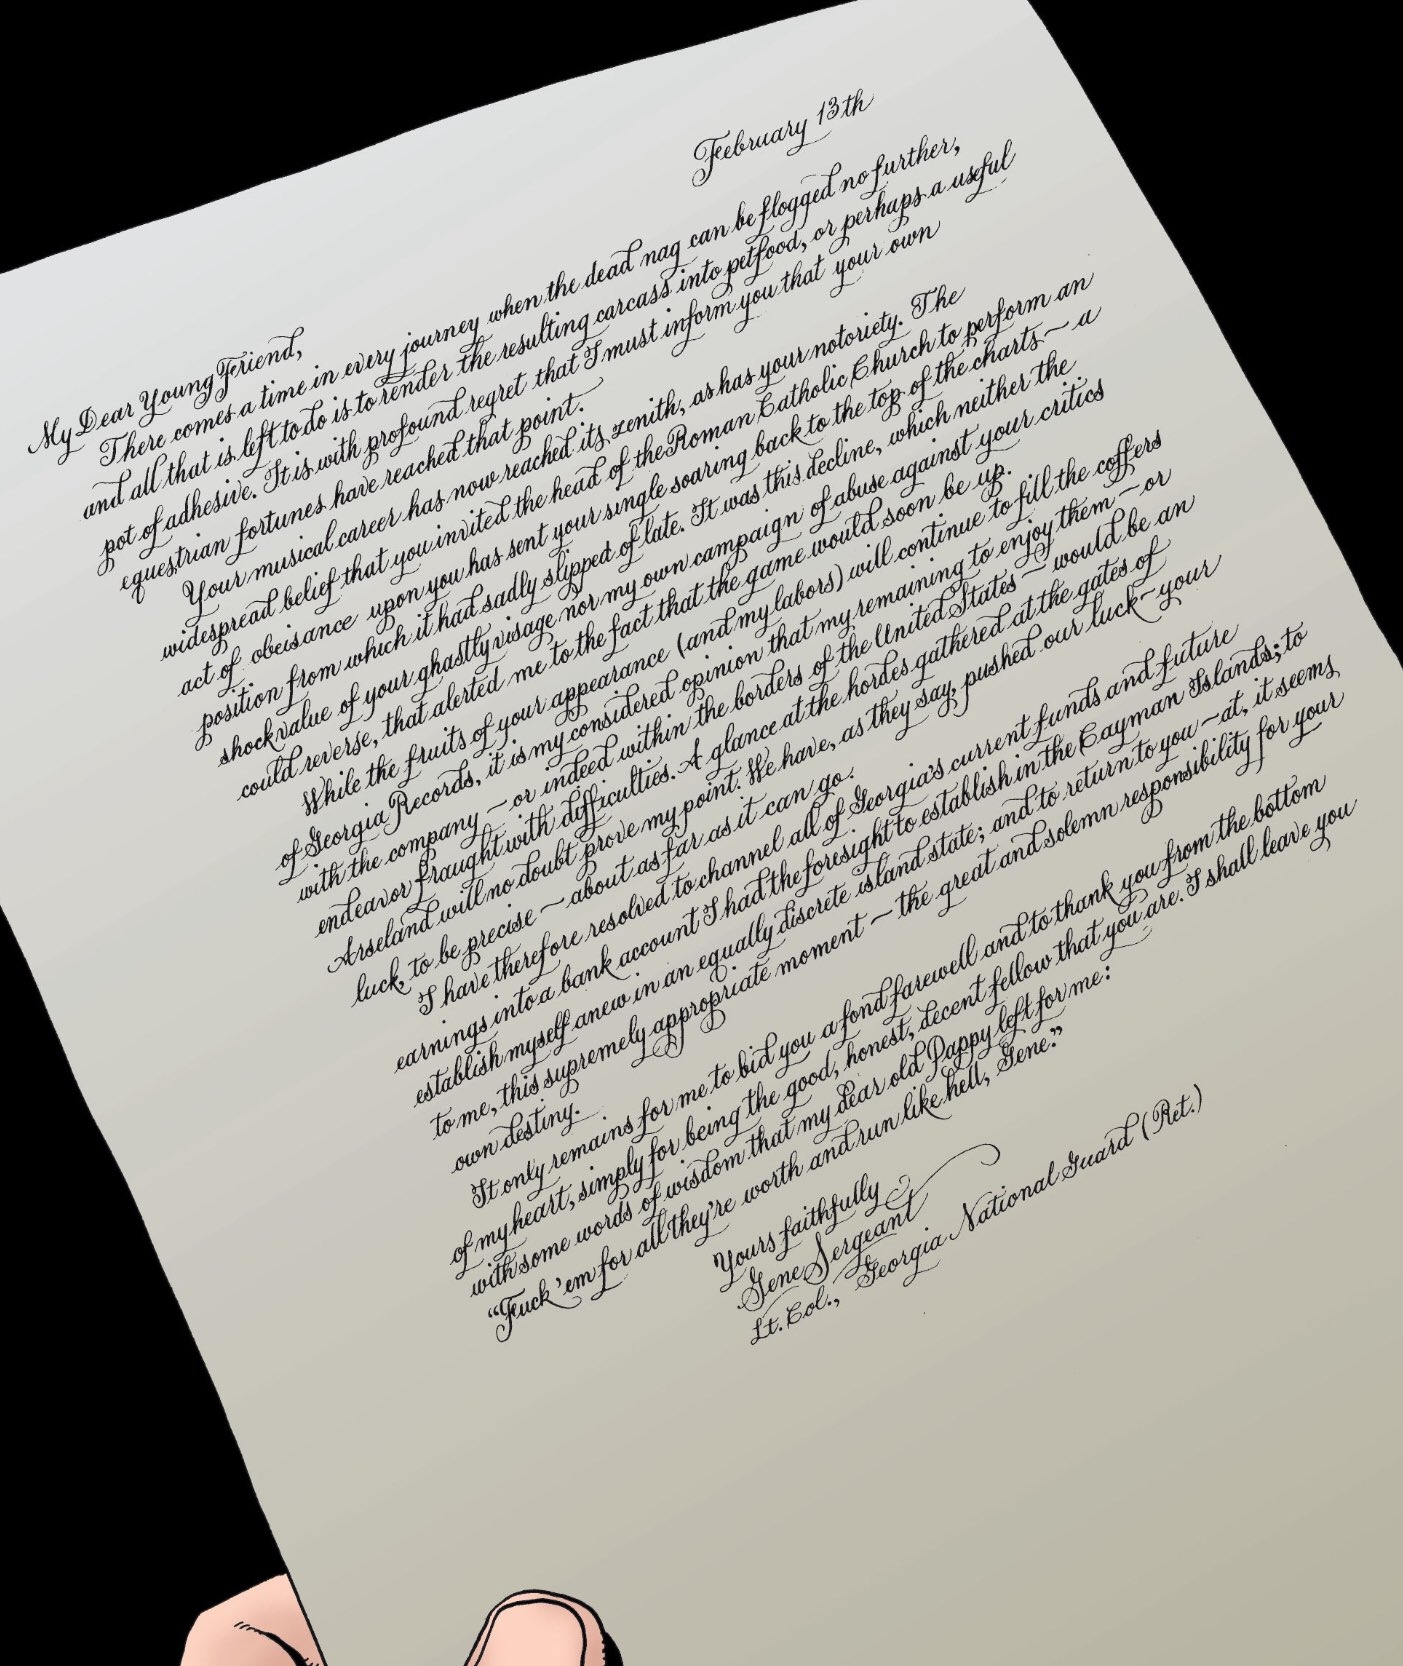 February 13th
My Dear Young Friend,
There comes a time in every journey when the dead nag can be flogged no further,
and all that is left to do is to render the resulting carcass into petfood, or perhaps a useful
pot of adhesive. It is with profound regret that I must inform you that your own
equestrian fortunes have reached that point.
Your musical career has now reached its zenith, as has your notoriety. The
widespread belief that you invited the head of the Roman Catholic Church to perform an
act of obeisance upon you has sent your single soaring back to the top of the charts — a
position from which it had sadly slipped of late. It was this decline, which neither the
shock value of your ghastly visage nor my own campaign of abuse against your critics
could reverse, that alerted me to the fact that the game would soon be up.
While the fruits of your appearance (and my labors) will continue to fill the coffers
of Georgia Records, it is my considered opinion that my remaining to enjoy them — or
with the company — or indeed within the borders of the United States — would be an
endeavor fraught with difficulties. A glance at the hordes gathered at the gates of
Arseland will no doubt prove my point. We have, as they say, pushed our luck — your
luck, to be precise — about as far as it can go.
I have therefore resolved to channel all of Georgia's current funds and future
earnings into a bank account I had the foresight to establish in the Cayman Islands; to
establish myself anew in an equally discrete island state; and to return to you — at, it seems
to me, this supremely appropriate moment — the great and solemn responsibility for your
own destiny.
It only remains for me to bid you a fond farewell and to thank you from the bottom
of my heart, simply for being the good, honest, decent fellow that you are. I shall leave you
with some words of wisdom that my dear old Pappy left for me:
"Fuck 'em for all they're worth and run like hell, Gene."
Yours faithfully
Gene Sergeant
Lt. Col., Georgia National Guard (Ret.)